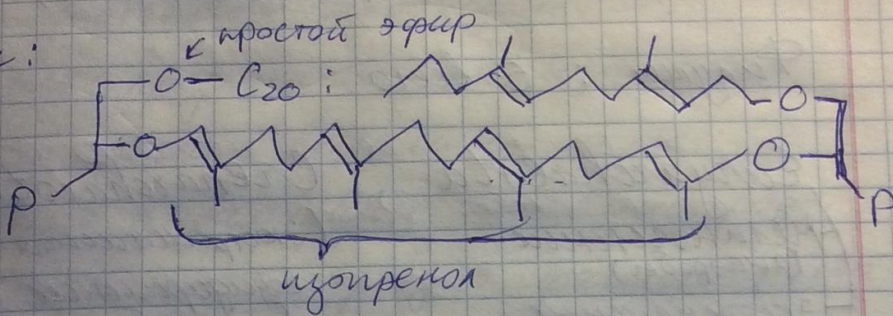 простой эфир
O — C20 :
O
O
O
P
P
изопренол